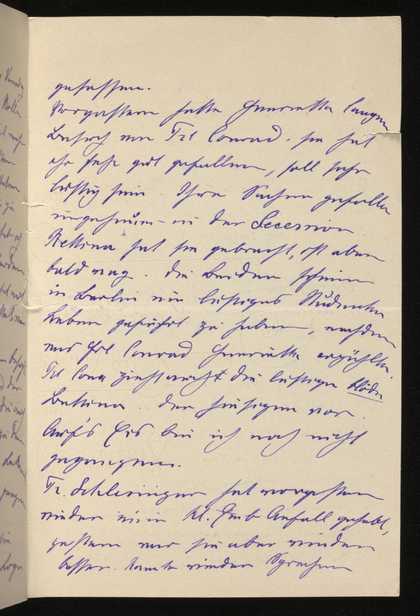 gelassen.
Vorgestern hatte Henriette langen
Besuch von Frl Conrad. sie hat
ihr sehr gut gefallen, soll sehr
lustig sein Ihre Sachen gefallen
ungeheuer in der Secession
Bettina hat sie gebracht, ist aber
bald weg. die Beiden scheinen
in Berlin ein lustiges Studenten
Leben geführt zu haben, nachdem
was Frl Conrad Henriette erzählte.
Frl Conr zieht die lustigen
Bettina der hiesigen vor.
Auf's Eis bin ich noch nicht
gegangen.
Fr. Schlesinger hat vorgestern
wieder einen kl. Anfall gehabt,
gestern war sie aber wieder
besser. konnte wieder Sprechen